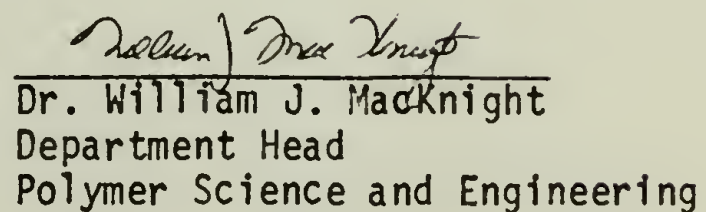 William J MacKnight
Dr. William J. MacKnight
Department Head
Polymer Science and Engineering